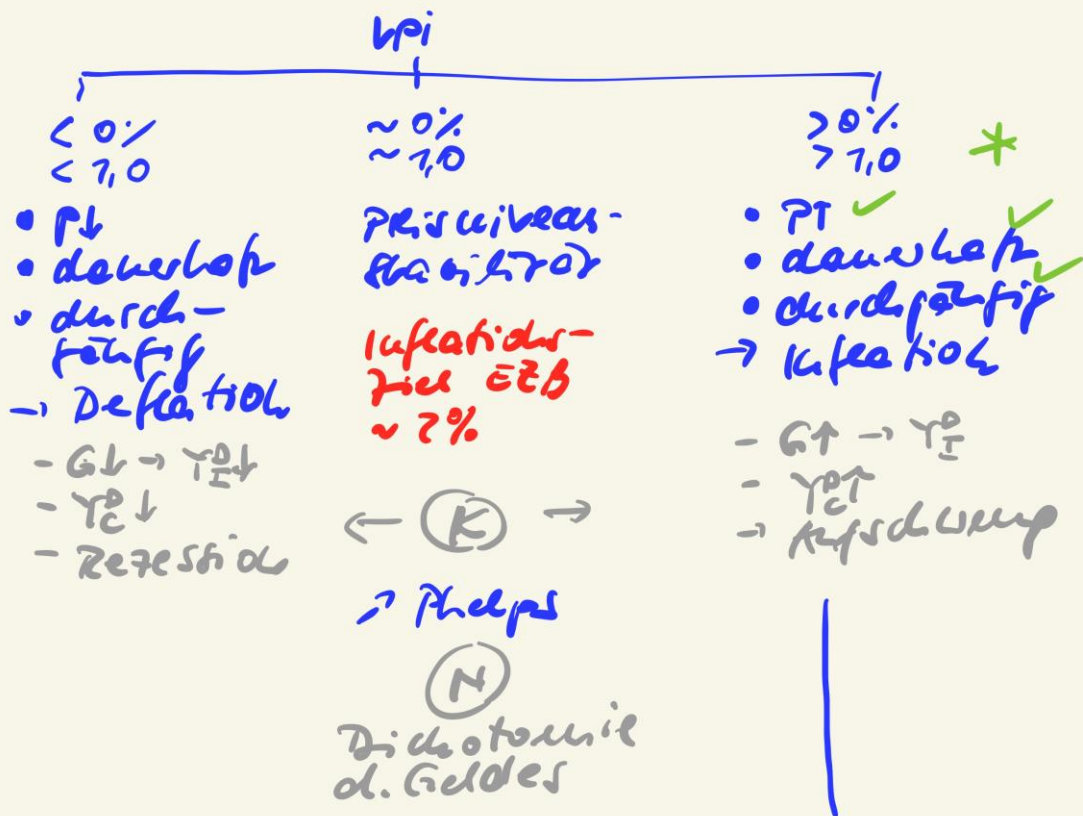 VPI
< 0%
< 1,0
• P↓
• dauerhaft
• durch-
gängig
→ Deflation
- G↓ → Y^D_I↓
- Y^D_C↓
- Rezession
~ 0%
~ 1,0
Preisniveau-
stabilität
Inflations-
ziel EZB
~ 2%
← K →
↗ Phelps
N
Dichotomie
d. Geldes
> 0% *
> 1,0
• P↑ ✓
• dauerhaft ✓
• durchgängig ✓
→ Inflation
- G↑ → Y^D_I
- Y^D_C↑
→ Aufschwung